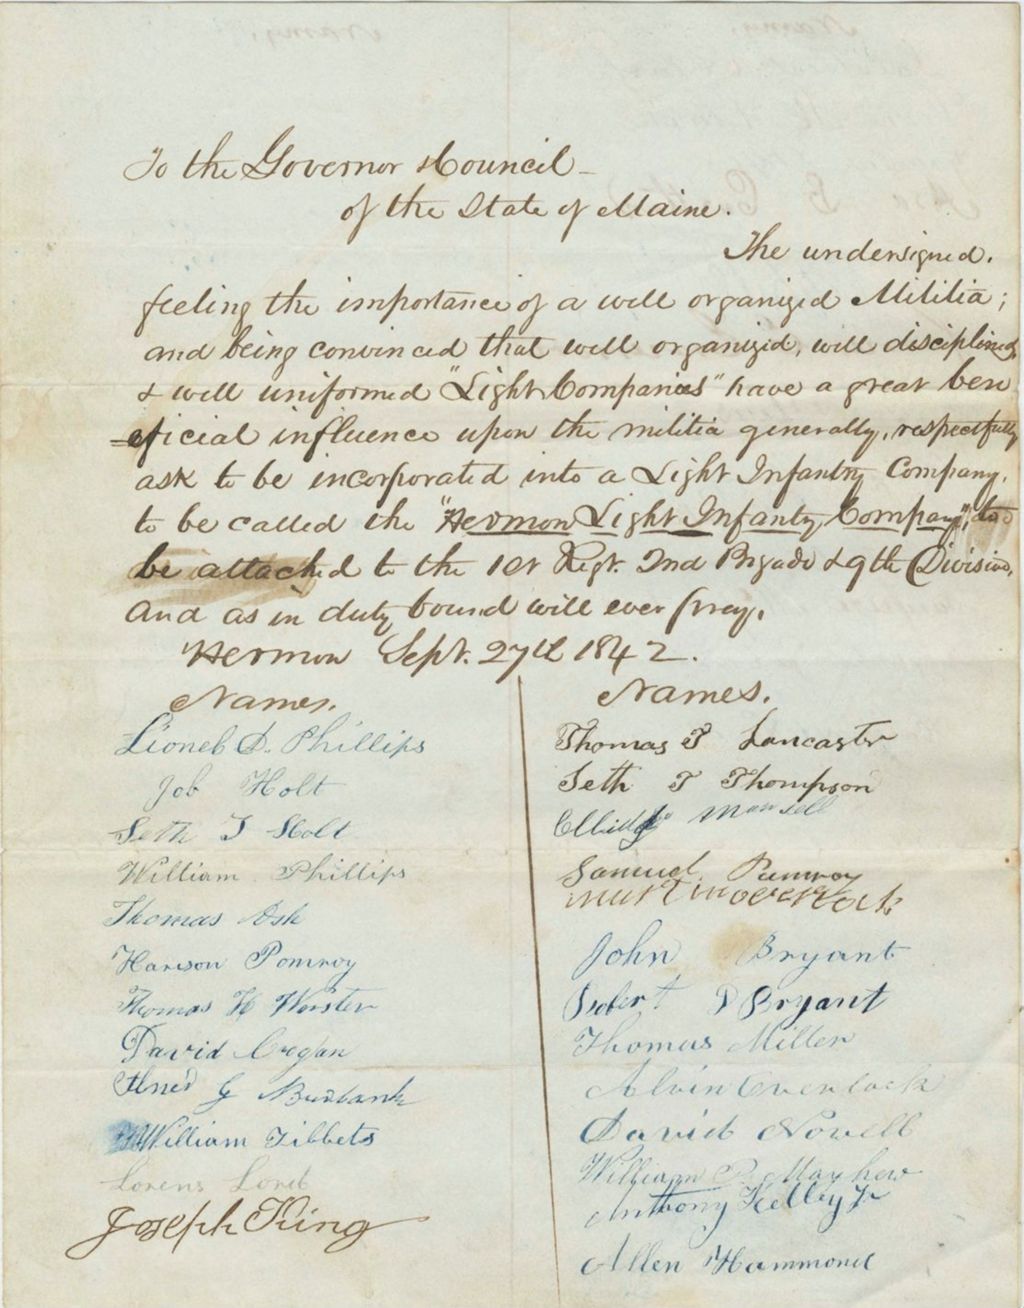 To the Governor & Council
of the State of Maine.
The undersigned,
feeling the importance of a well organized Militia;
and being convinced that well organized, well disciplined
& well uniformed "Light Companies" have a great ben
=eficial influence upon the militia generally, respectfully
ask to be incorporated into a Light Infantry Company,
to be called the "Hermon Light Infantry Company", to
be attached to the 1st Regt. 2nd Brigade & 9th Division,
and as in duty bound will ever pray,
Hermon Sept. 27th 1842.
Names.
Lionel D. Phillips
Job Holt
Seth T Holt
William Phillips
Thomas Ash
Harison Pomroy
Thomas H Worster
David Crogan
G Burbank
William Tibbets
Lorens Lord
Joseph King
Names.
Thomas T Lancaster
Seth T Thompson
Mansell
Samuel Pumroy
John Bryant
Robert D Bryant
Thomas Miller
Alvin Overlock
David Novell
William P. Mayhew
Anthony Kelley Jr
Allen Hammond